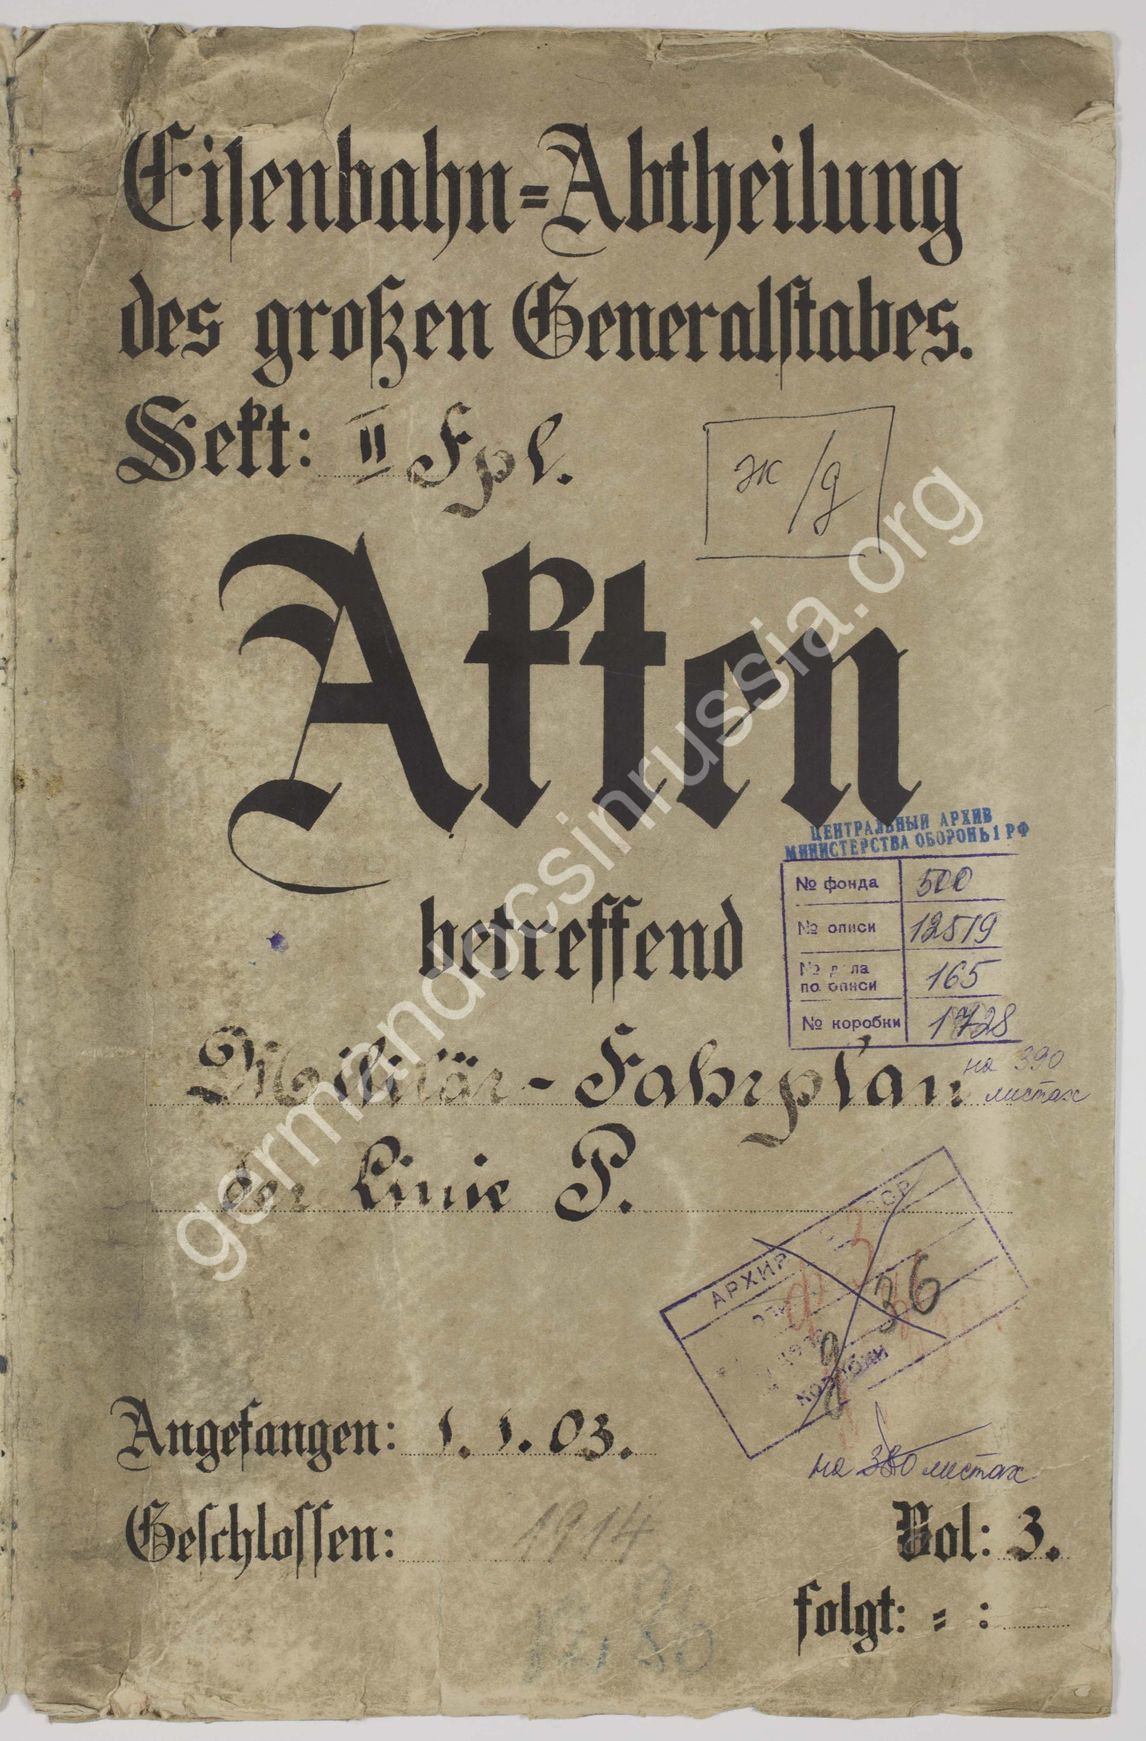 Eisenbahn=Abtheilung
des großen Generalstabes.
Sekt: II Fpl.
ж/д
Akten
betreffend
ЦЕНТРАЛЬНЫЙ АРХИВ
МИНИСТЕРСТВА ОБОРОНЫ РФ
№ фонда 500
№ описи 12519
№ дела
по описи 165
№ коробки 1728
на 390
листах
Militär-Fahrplan
der Linie P.
АРХИВ
36
коробки
Angefangen: 1. 1. 03.
на 380 листах
Geschlossen: 1914
Vol: 3.
folgt: = :
germandocsinrussia.org